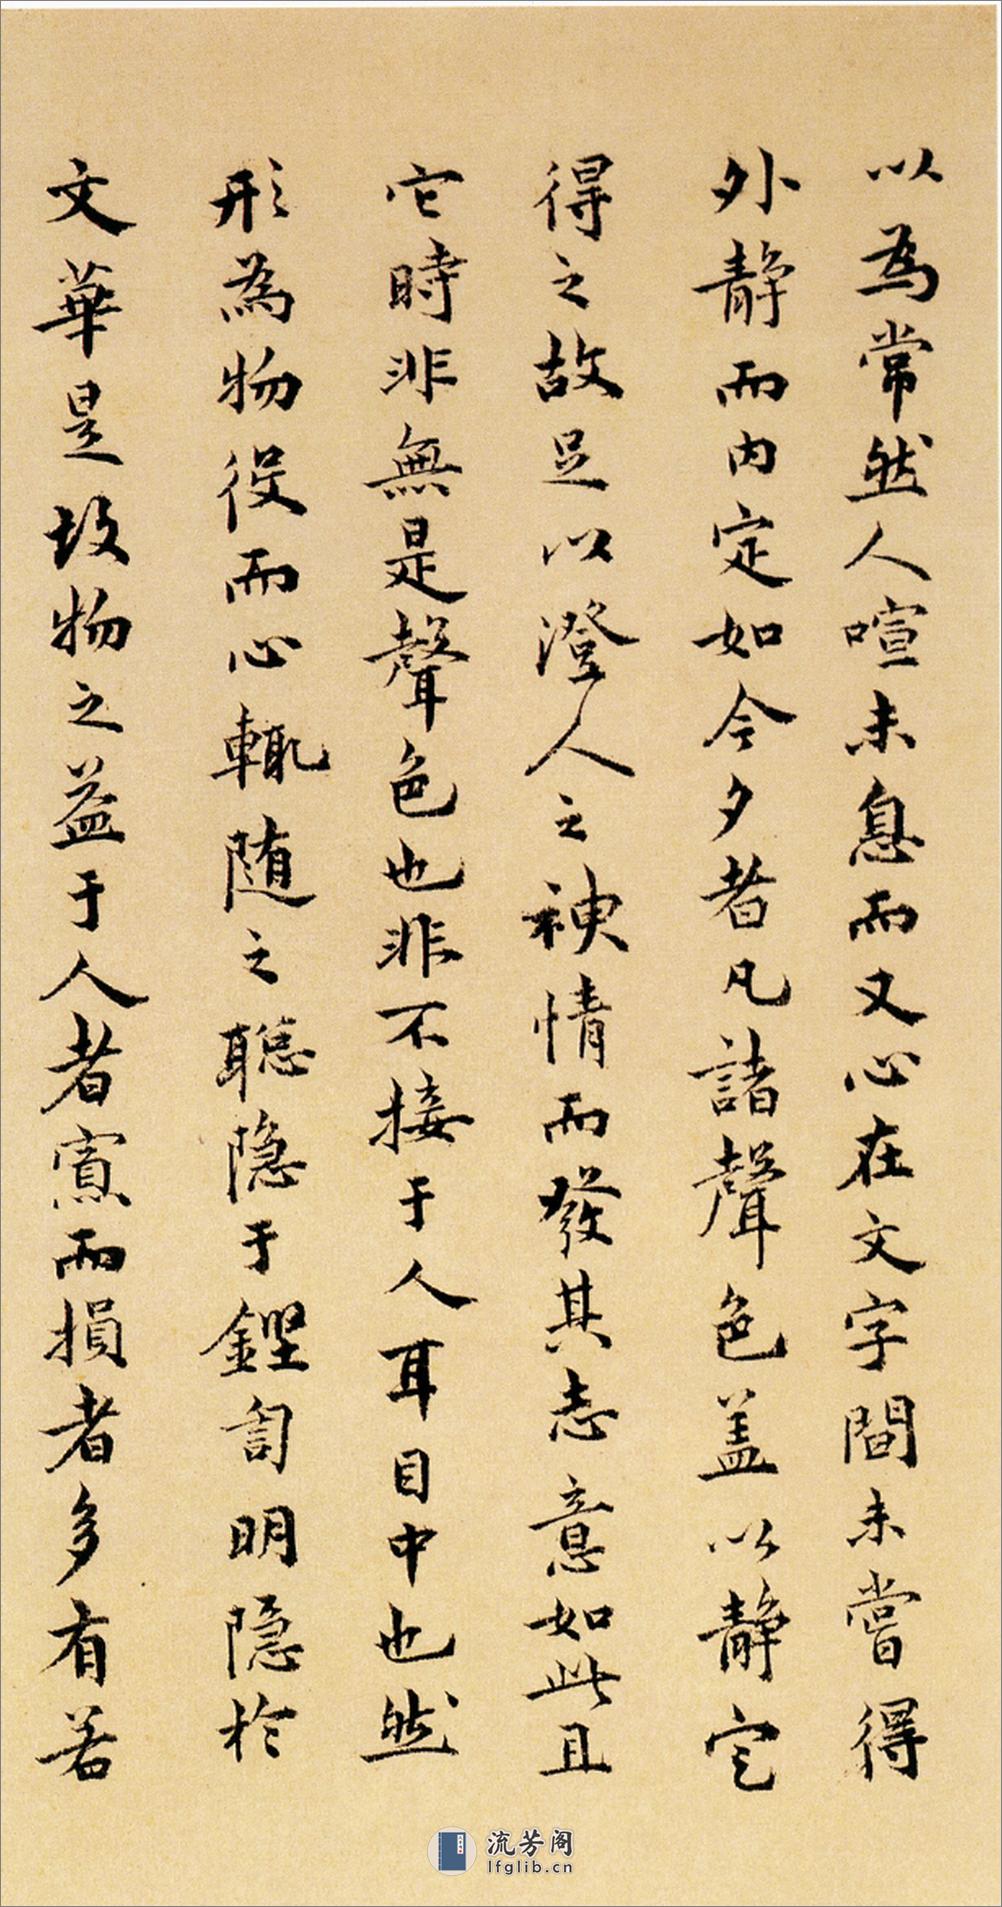 以為常然人喧未息而又心在文字間未嘗得
外静而内定如今夕者凡諸聲色盖以静定
得之故足以澄人之神情而發其志意如此且
它時非無是聲色也非不接于人耳目中也然
形為物役而心輒随之聡隐于鏗訇明隐於
文華是故物之益于人者寡而損者多有若
流芳阁
lfglib.cn